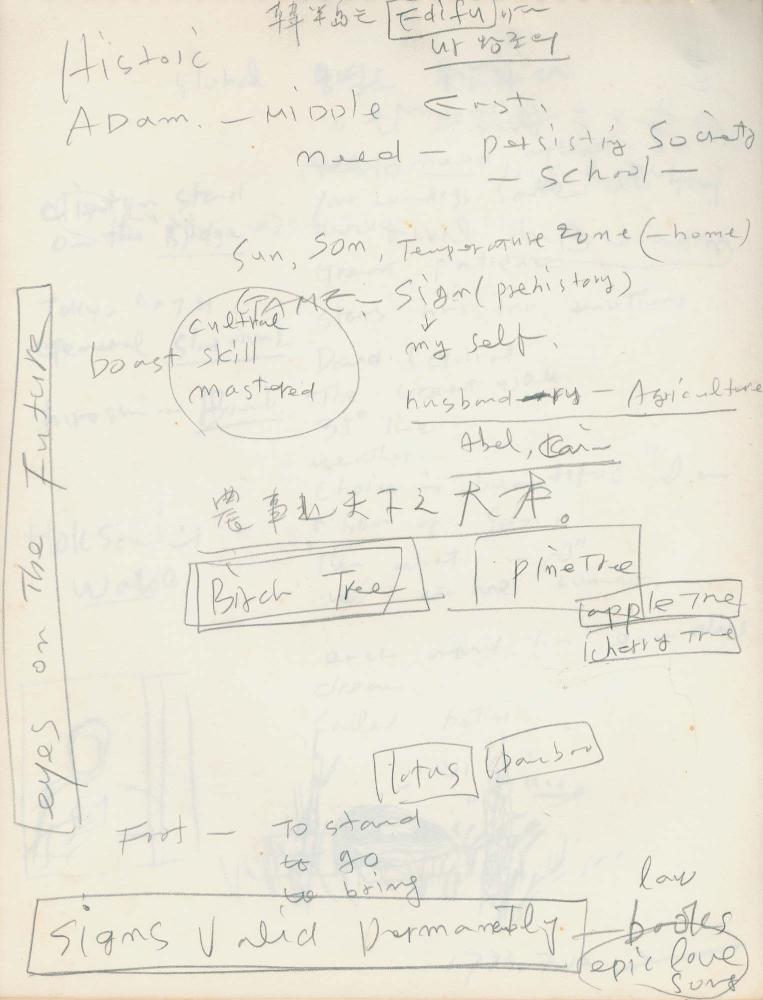 韓半島는 Edifu
Historic
ADam. - MIDDle East.
need - Persistiy Society
- School -
Sun, Son, Temperature zone (-home)
GAME - Sign (prehistory)
cultral
boast skill
mastered
my self.
husband-ry - Agriculture
Abel, Cain
農事 天下之大本。
Birch Tree
PineTree
apple Tree
cherry Tree
eyes on The Future
lotus
bamboo
Foot - To stand
to go
to bring
Signs Valid Permanetly
law
books
epic love
song